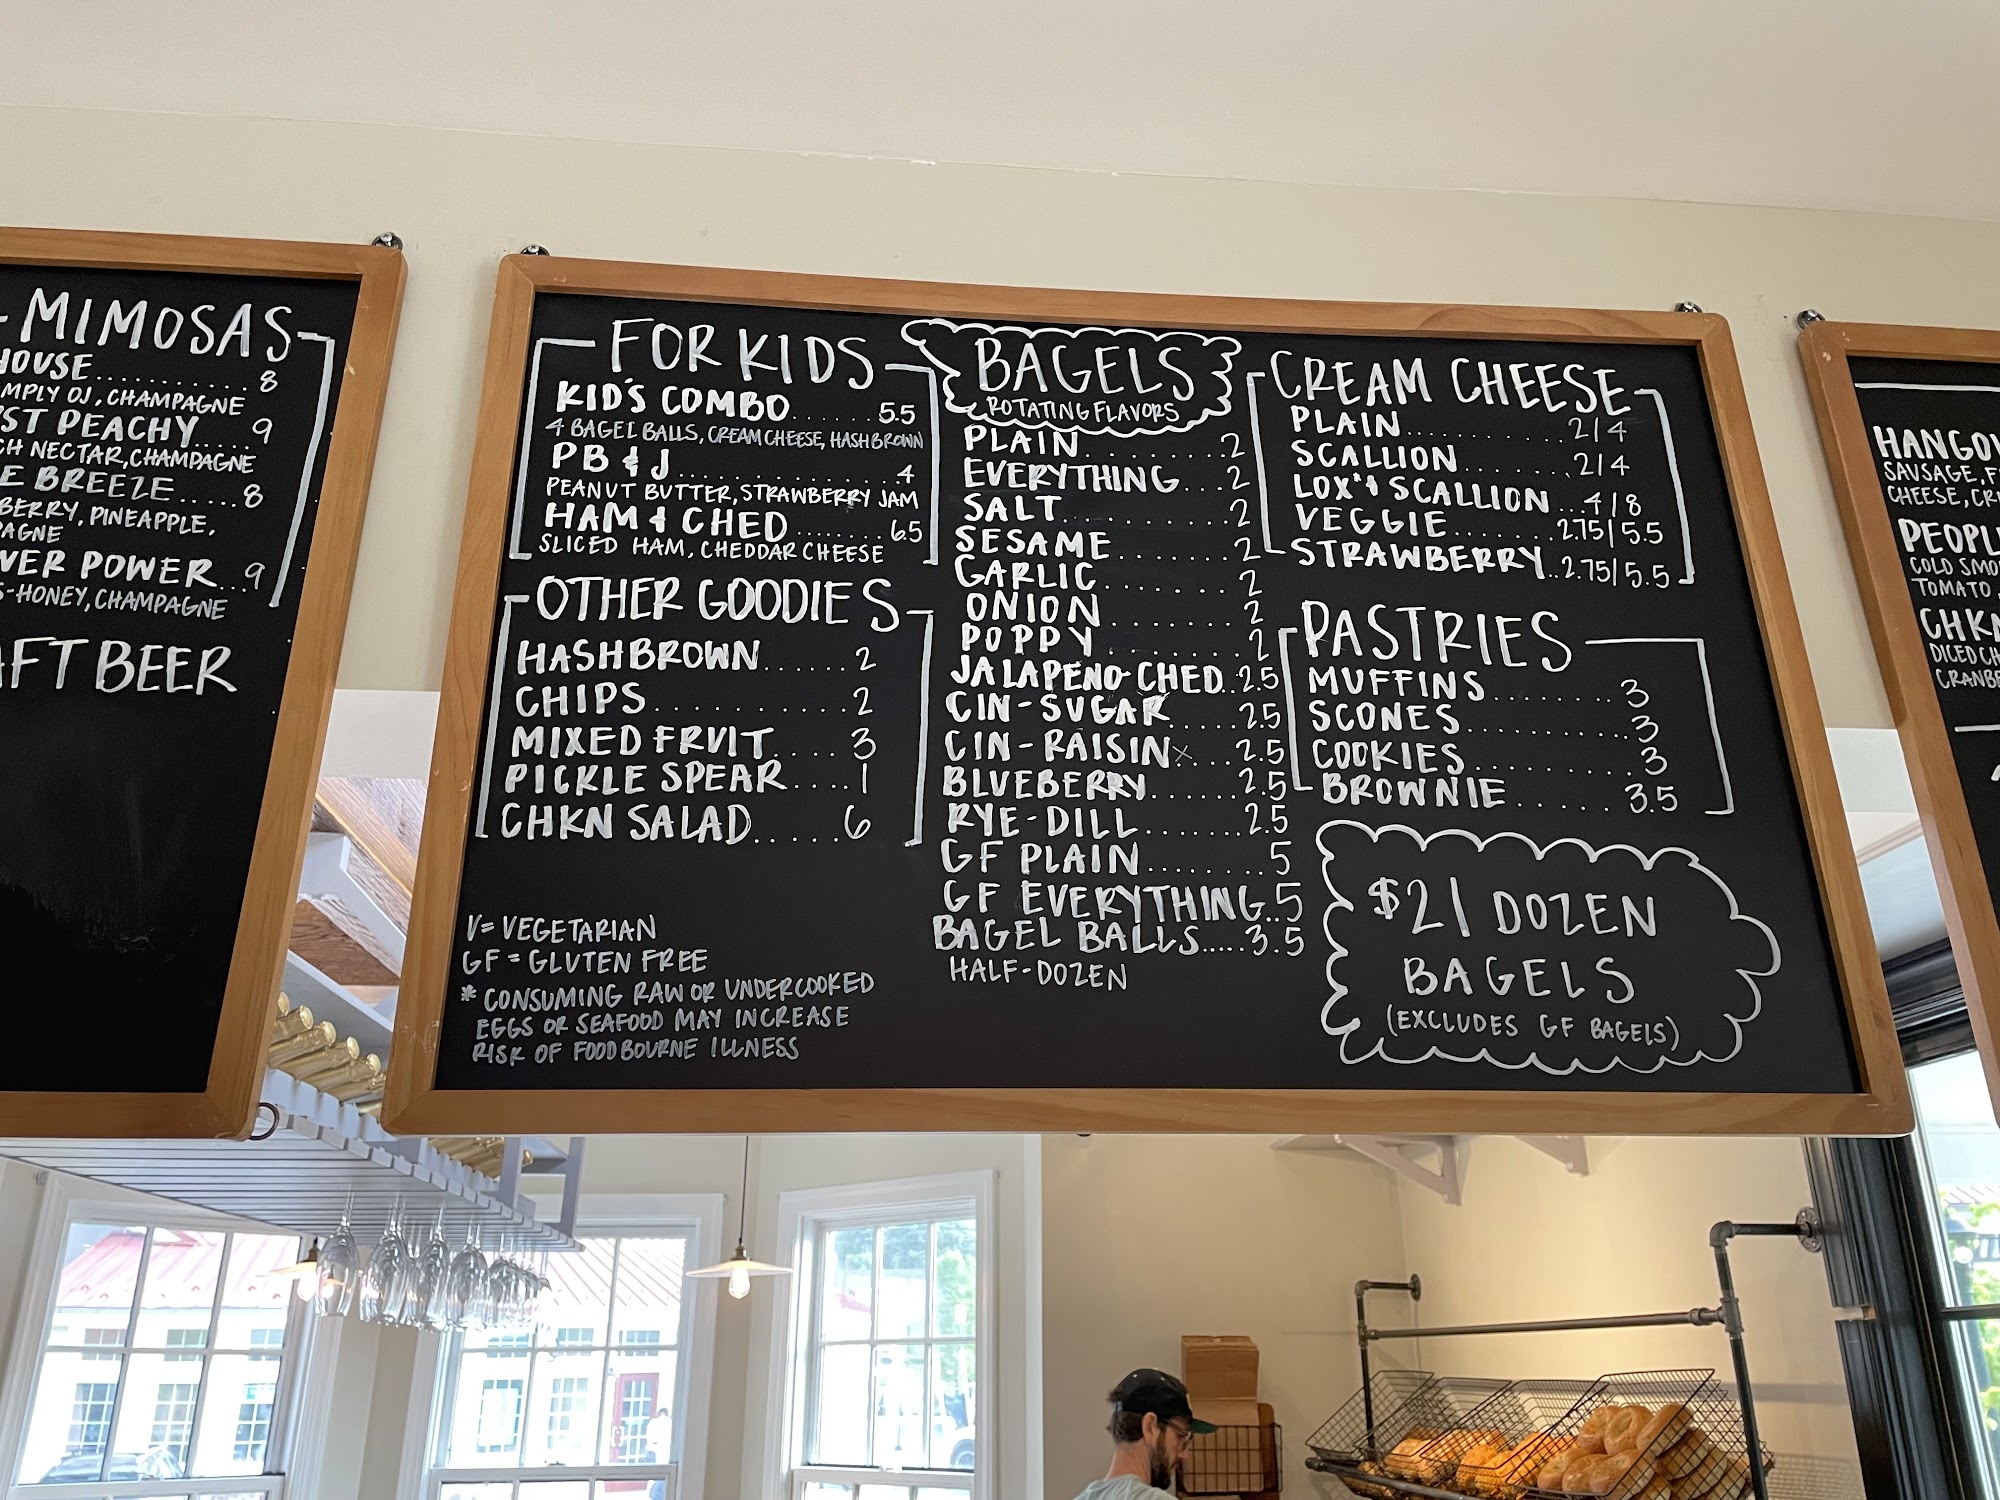 MIMOSAS
HOUSE............ 8
MPLY OJ, CHAMPAGNE
ST PEACHY..... 9
CH NECTAR, CHAMPAGNE
E BREEZE..... 8
BERRY, PINEAPPLE,
PAGNE
VER POWER...9
S-HONEY, CHAMPAGNE
AFT BEER
FOR KIDS
KID'S COMBO....... 5.5
4 BAGEL BALLS, CREAM CHEESE, HASHBROWN
PB & J.............. 4
PEANUT BUTTER, STRAWBERRY JAM
HAM & CHED........ 6.5
SLICED HAM, CHEDDAR CHEESE
OTHER GOODIES
HASHBROWN...... 2
CHIPS........... 2
MIXED FRUIT.... 3
PICKLE SPEAR.... 1
CHKN SALAD..... 6
V = VEGETARIAN
GF = GLUTEN FREE
* CONSUMING RAW OR UNDERCOOKED
EGGS OR SEAFOOD MAY INCREASE
RISK OF FOODBOURNE ILLNESS
BAGELS
ROTATING FLAVORS
PLAIN.......... 2
EVERYTHING... 2
SALT.......... 2
SESAME....... 2
GARLIC....... 2
ONION........ 2
POPPY........ 2
JALAPENO-CHED..2.5
CIN-SUGAR.....2.5
CIN-RAISINx...2.5
BLUEBERRY......2.5
RYE-DILL.......2.5
GF PLAIN........5
GF EVERYTHING..5
BAGEL BALLS.....3.5
HALF-DOZEN
CREAM CHEESE
PLAIN........... 2/4
SCALLION....... 2/4
LOX* & SCALLION...4/8
VEGGIE.......2.75/5.5
STRAWBERRY..2.75/5.5
PASTRIES
MUFFINS.........3
SCONES...........3
COOKIES..........3
BROWNIE......3.5
$21 DOZEN
BAGELS
(EXCLUDES GF BAGELS)
HANGO
SAUSAGE, F
CHEESE, CR
PEOPL
COLD SMO
TOMATO,
CHKN
DICED CH
CRANBE